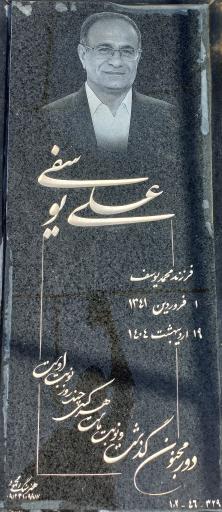 علی یوسفی
فرزند محمد یوسف
۱ فروردین ۱۳۴۱
۱۹ اردیبهشت ۱۴۰۴
دور مجنون گذشت و نوبت ماست
هر کسی چند روز نوبت اوست
۱۰۲ - ۴۶ - ۳۲۹